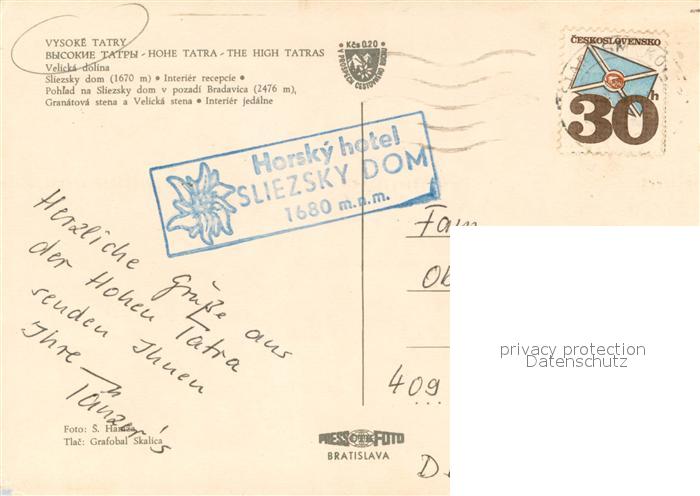 VYSOKÉ TATRY
ВЫСОКИЕ ТАТРЫ - HOHE TATRA - THE HIGH TATRAS
Velická dolina
Sliezsky dom (1670 m) • Interiér recepcie •
Pohľad na Sliezsky dom v pozadí Bradavica (2476 m),
Granátová stena a Velická stena • Interiér jedálne
Kčs 0.20
V PROSPECH CESTOVNÉHO RUCHU
ČESKOSLOVENSKO
30h
Horský hotel
SLIEZSKY DOM
1680 m.n.m.
Herzliche Grüße aus
der Hohen Tatra
senden Ihnen
Ihre
Tänzer's
Fam
Ob
409
D
privacy protection
Datenschutz
Foto: Š.
Tlač: Grafobal Skalica
PRESSFOTO
BRATISLAVA